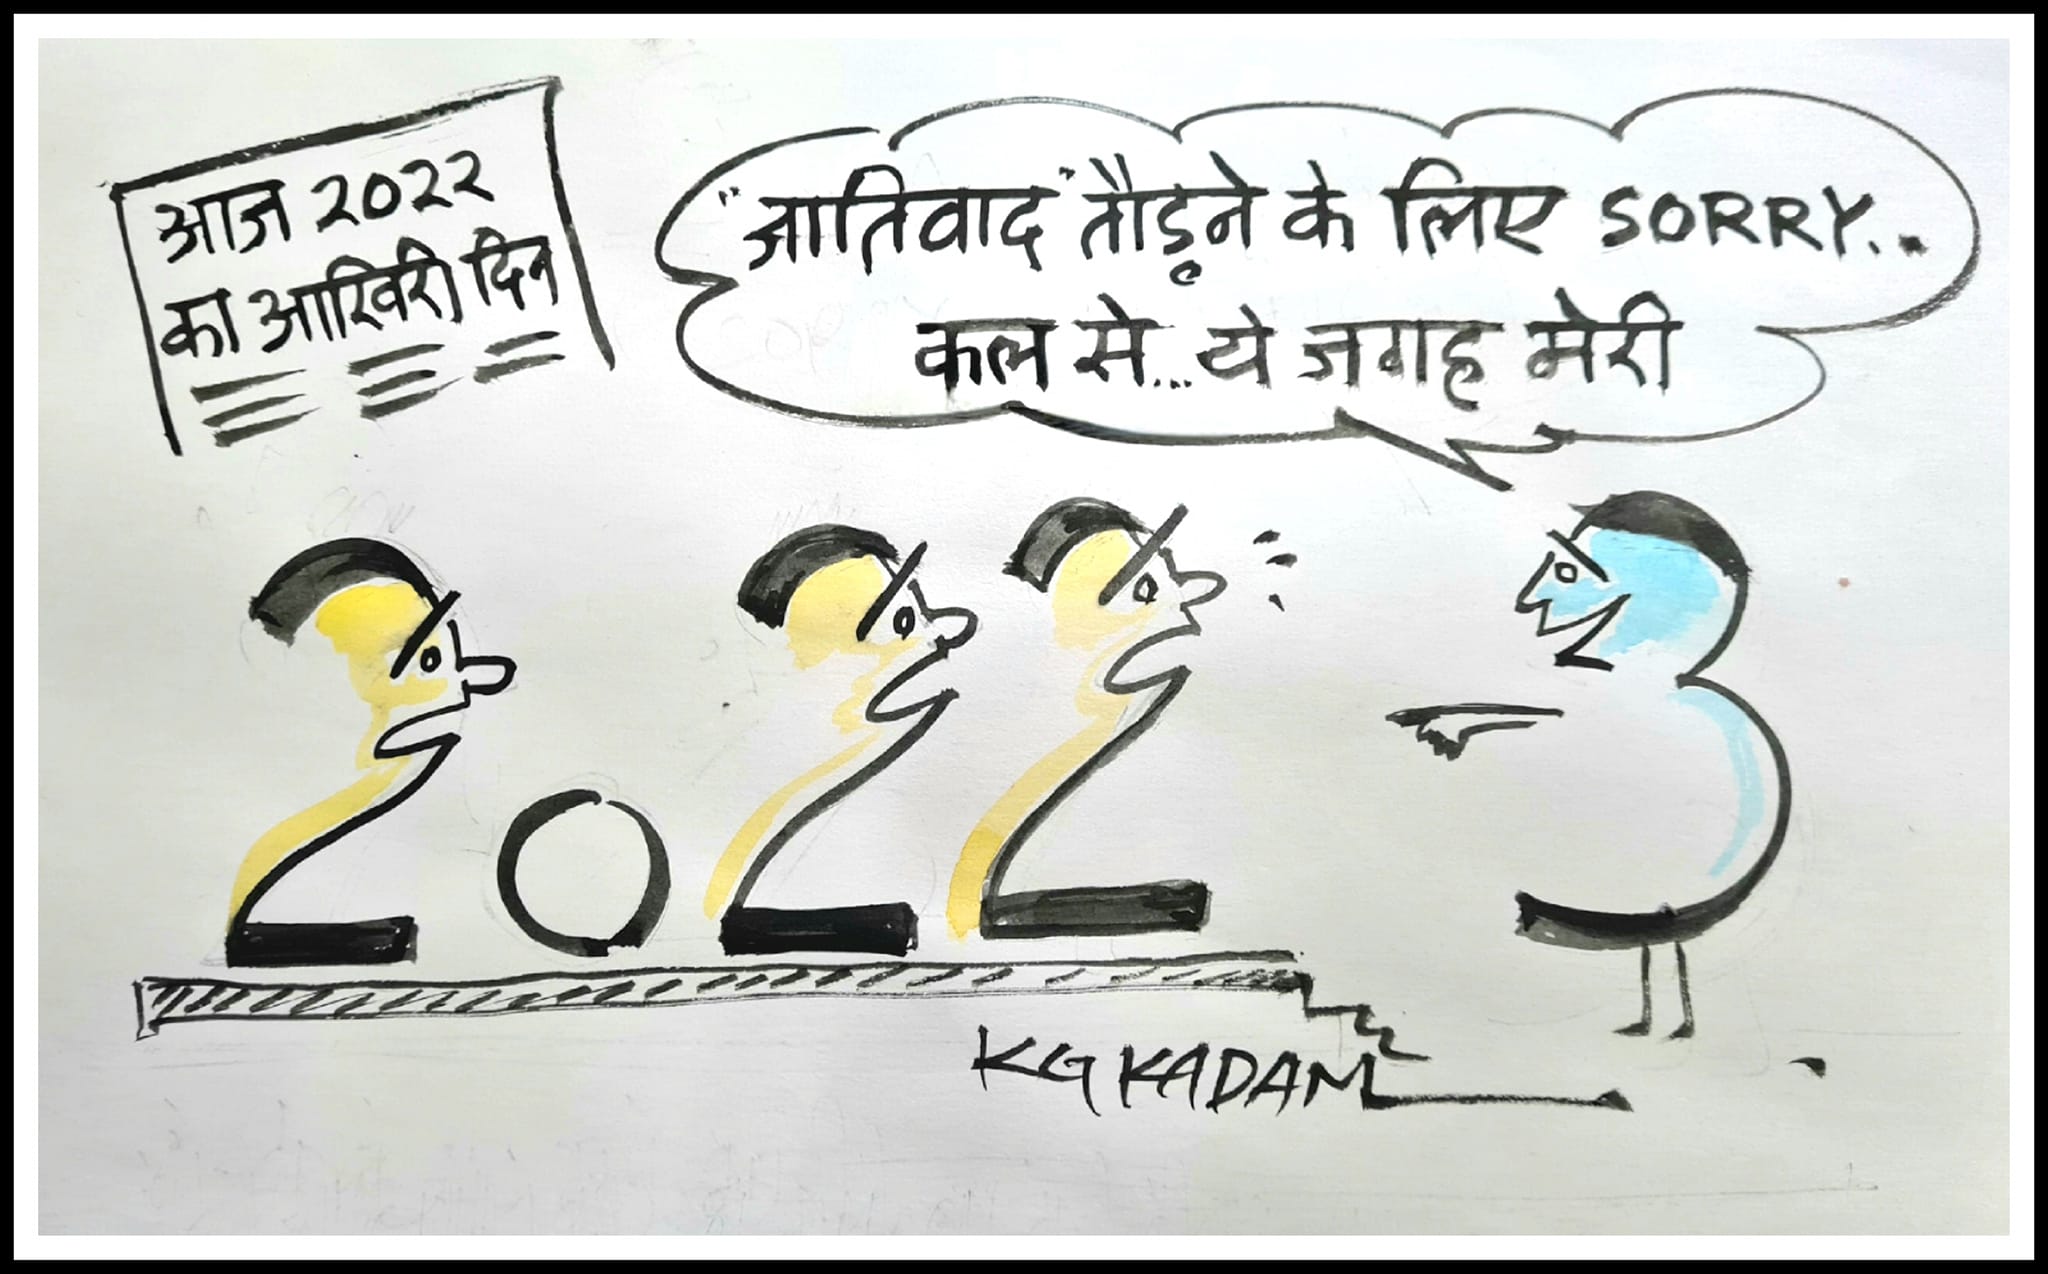 आज 2022
का आखिरी दिन
"जातिवाद" तौड़ने के लिए SORRY..
कल से... ये जगह मेरी
2022 3
KG KADAM